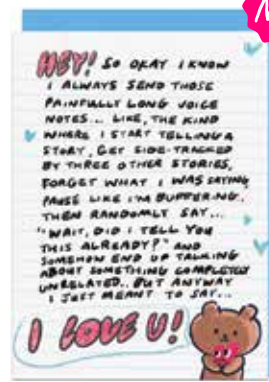 HEY! SO OKAY I KNOW
I ALWAYS SEND THOSE
PAINFULLY LONG VOICE
NOTES... LIKE, THE KIND
WHERE I START TELLING A
STORY, GET SIDE-TRACKED
BY THREE OTHER STORIES,
FORGET WHAT I WAS SAYING
PAUSE LIKE I'M BUFFERING,
THEN RANDOMLY SAY...
"WAIT, DID I TELL YOU
THIS ALREADY?" AND
SOMEHOW END UP TALKING
ABOUT SOMETHING COMPLETELY
UNRELATED.. BUT ANYWAY
I JUST MEANT TO SAY...
I LOVE U!